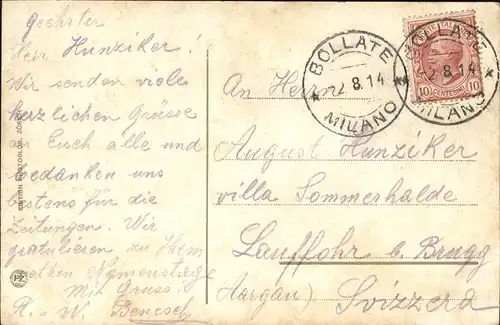 Geehrter
Herr Hunziker!
Wir senden viele
herzlichen Grüsse
an Euch alle und
bedanken uns
bestens für die
Zeitungen. Wir
gratulieren zu Ihrem
Namenstage
Mit Gruss.
R. W. Benesch
An Herrn
August Hunziker
villa Sommerhalde
Lauffohr b. Brugg
Aargau) Svizzera
BOLLATE
2.8.14
MILANO
BOLLATE
2.8.14
MILANO
10 CENTESIMI 10